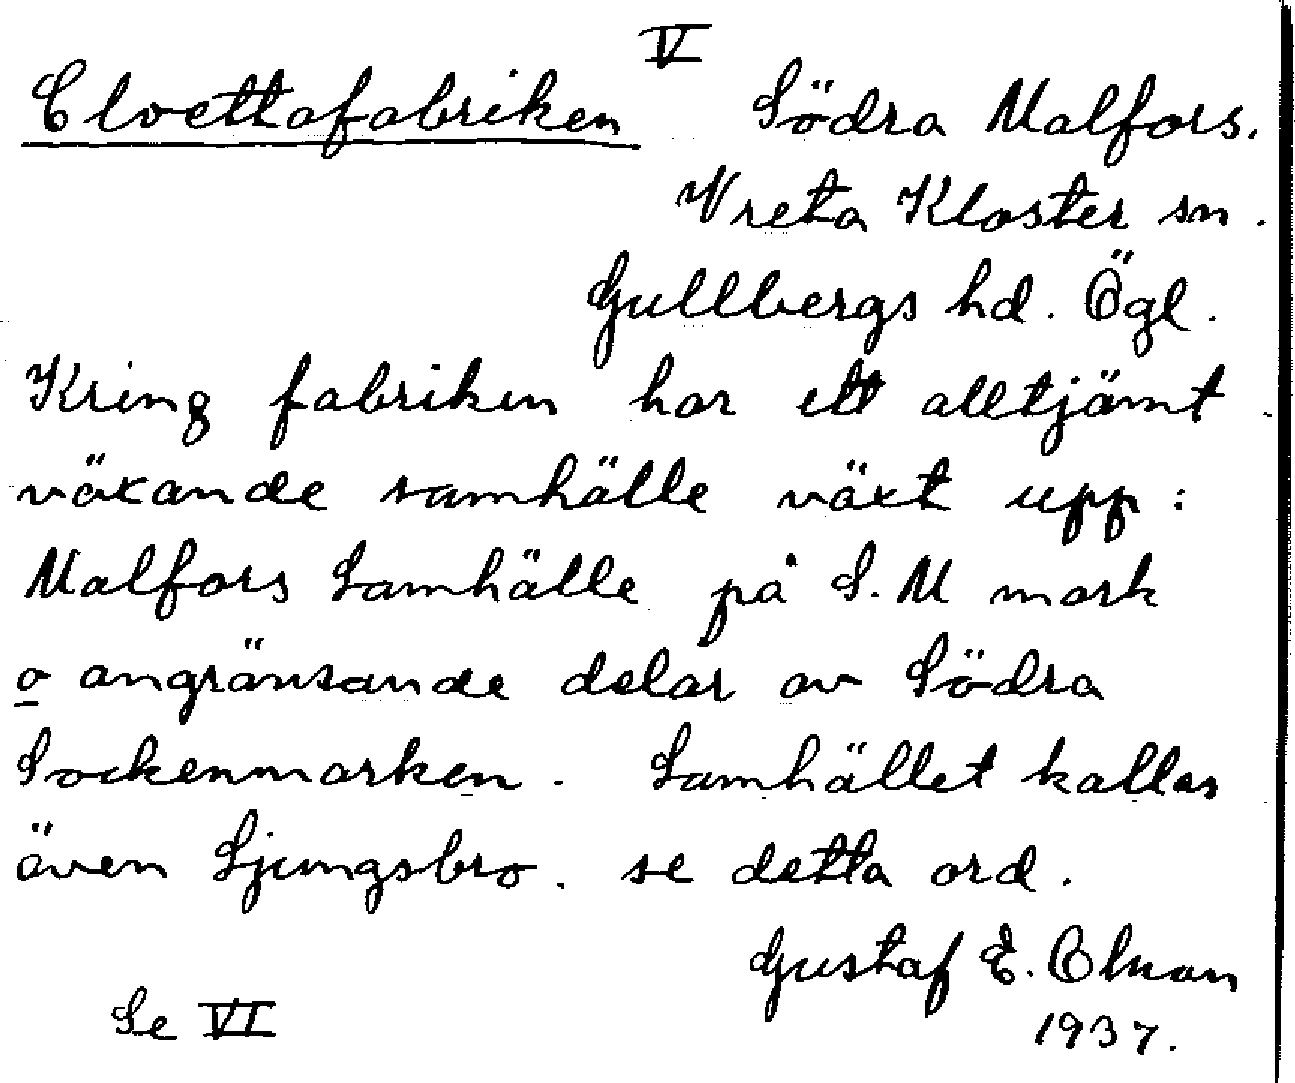 V
Cloettafabriken Södra Malfors.
Vreta Kloster sn.
Gullbergs hd. Ögl.
Kring fabriken har ett alltjämt
växande samhälle växt upp:
Malfors Samhälle på S. M mark
o angränsande delar av Södra
Sockenmarken. Samhället kallas
även Ljungsbro. se detta ord.
Gustaf E.
1937.
Se VI